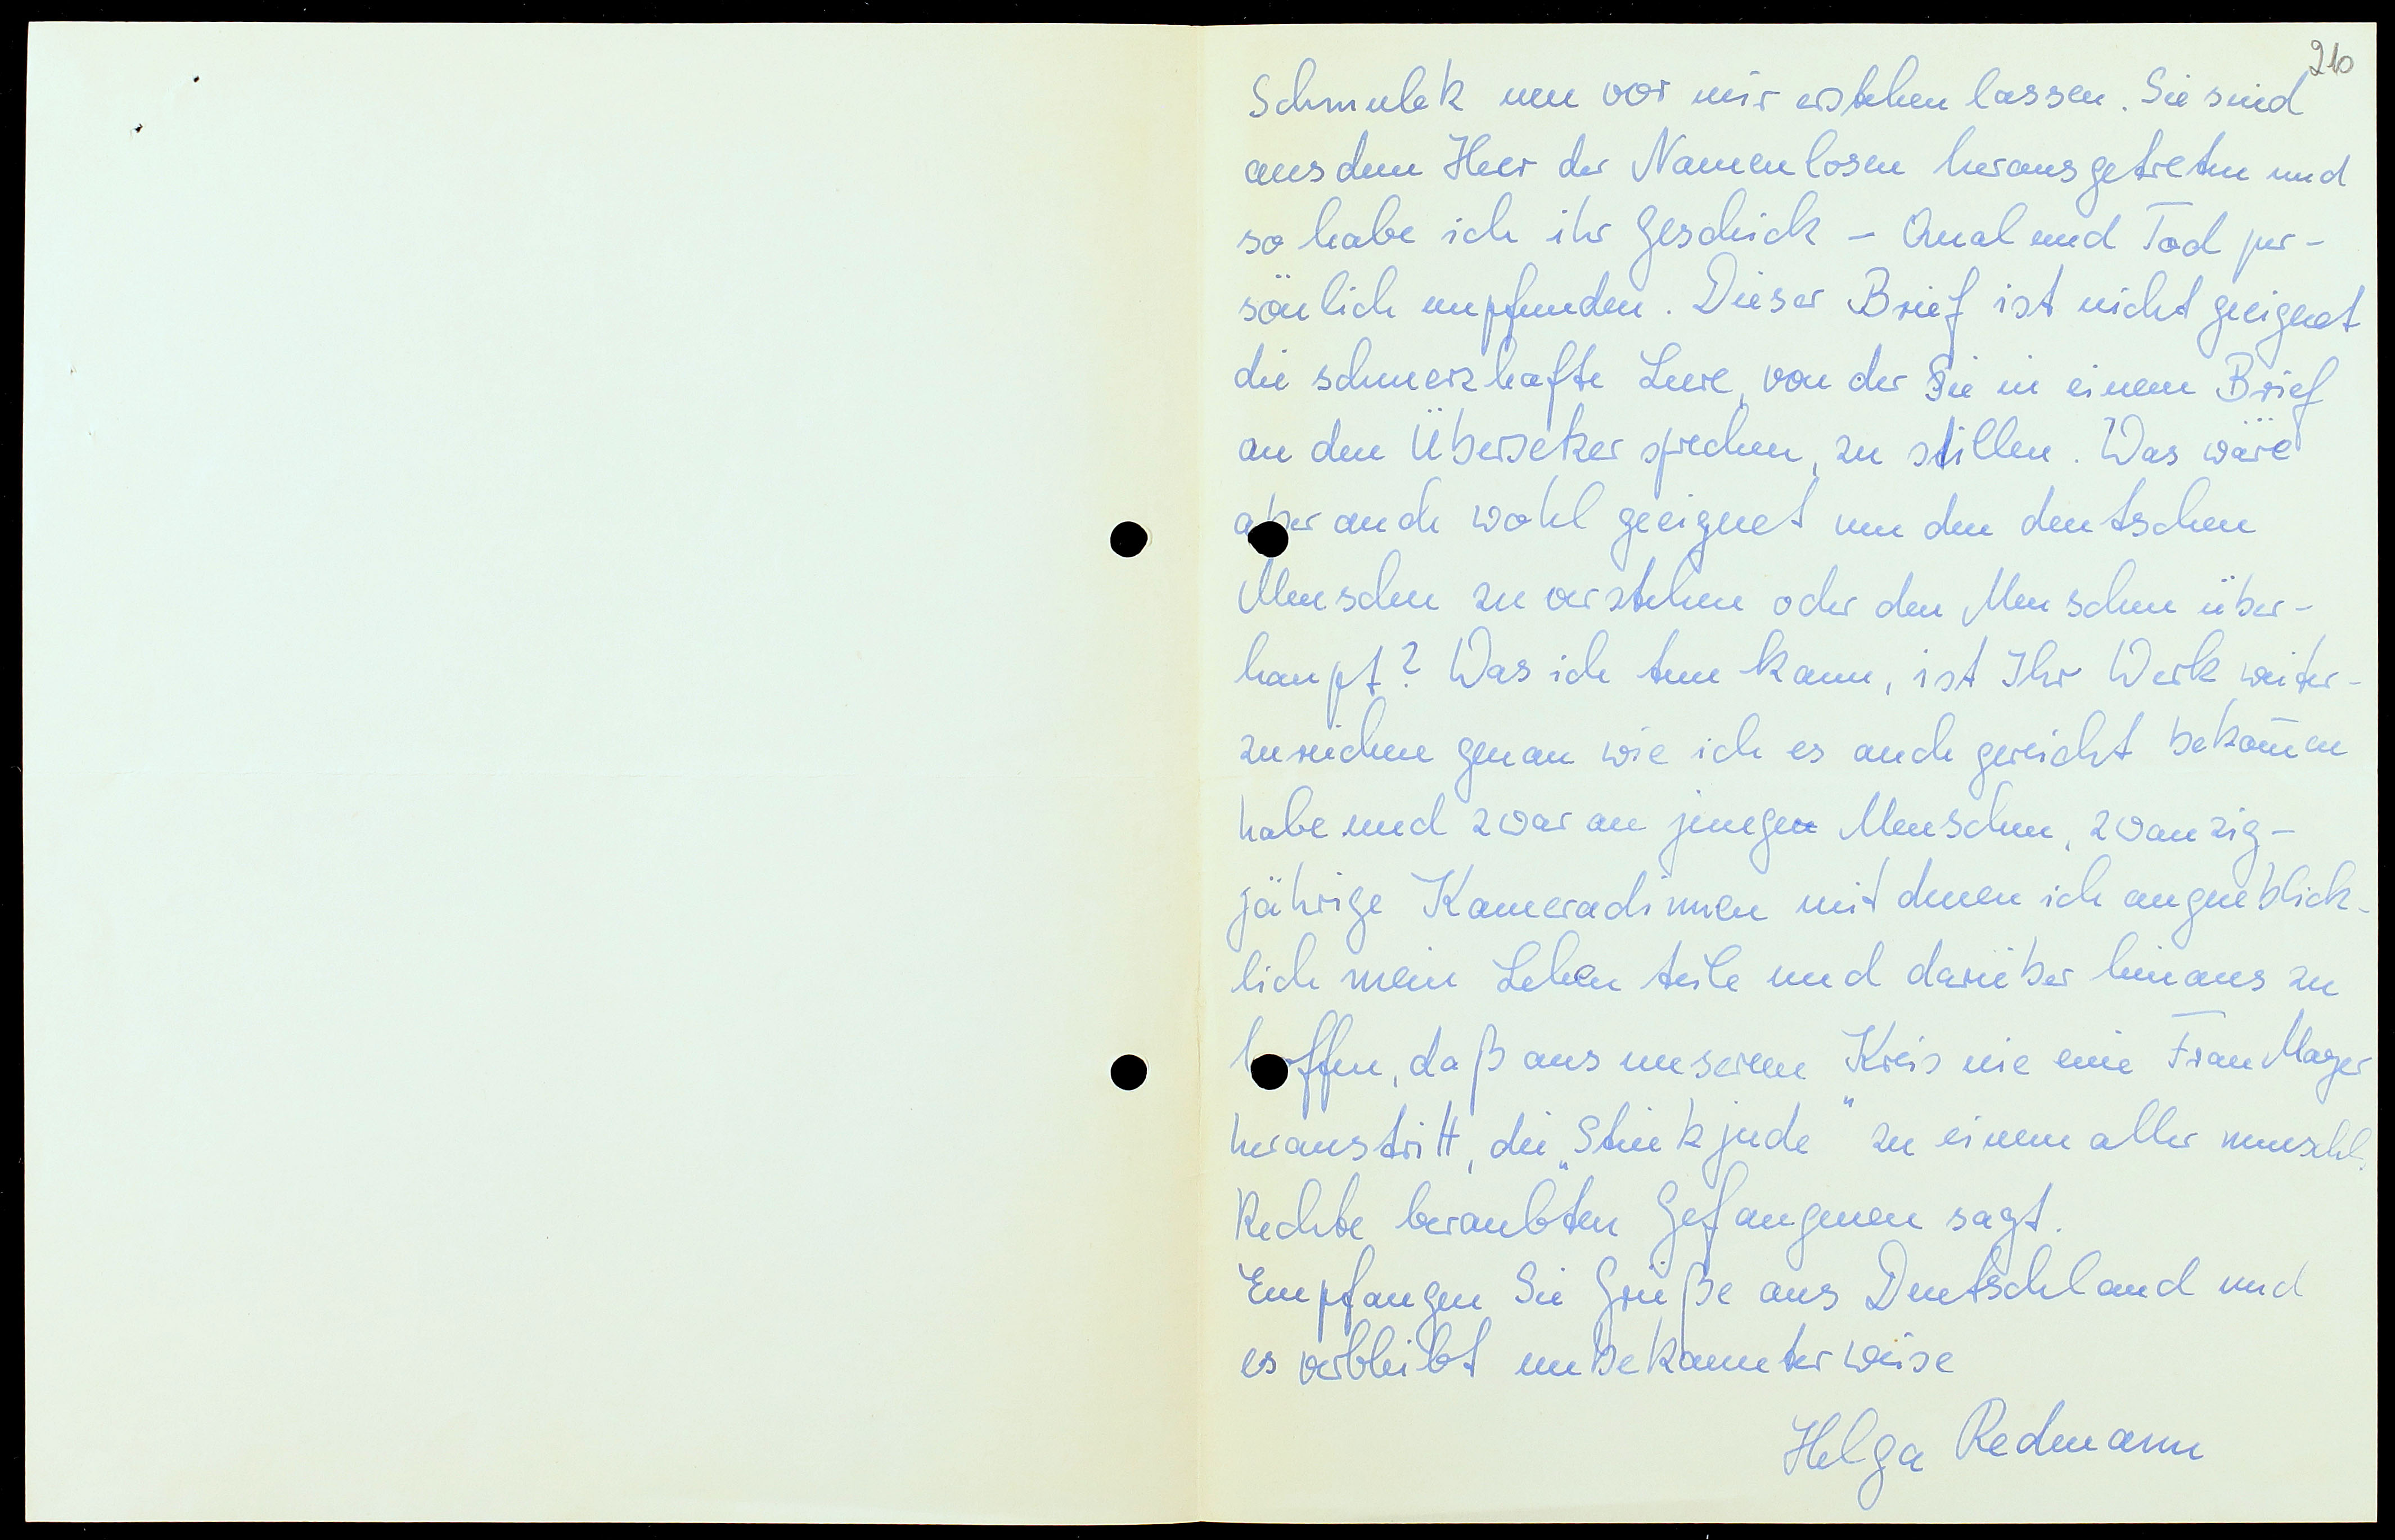 210
Schmulek neu vor mir erstehen lassen. Sie sind
aus dem Heer der Namenlosen herausgetreten und
so habe ich ihr Geschick – Qual und Tod per-
sönlich empfunden. Dieser Brief ist nicht geeignet
die schmerzhafte Leere, von der Sie in einem Brief
an den Übersetzer sprechen, zu stillen. Was wäre
aber auch wohl geeignet um den deutschen
Menschen zu verstehen oder den Menschen über-
haupt? Was ich tun kann, ist Ihr Werk weiter-
zureichen genau wie ich es auch gereicht bekom̄en
habe und zwar an junge Menschen, zwanzig-
jährige Kameradinnen mit denen ich augenblick-
lich mein Leben teile und darüber hinaus zu
hoffen, daß aus unserem Kreis nie eine Frau Mayer
heraustritt, die „Stinkjude“ zu einem aller menschl.
Rechte beraubten Gefangenen sagt.
Empfangen Sie Grüße aus Deutschland und
es verbleibt unbekannterweise
Helga Redmann